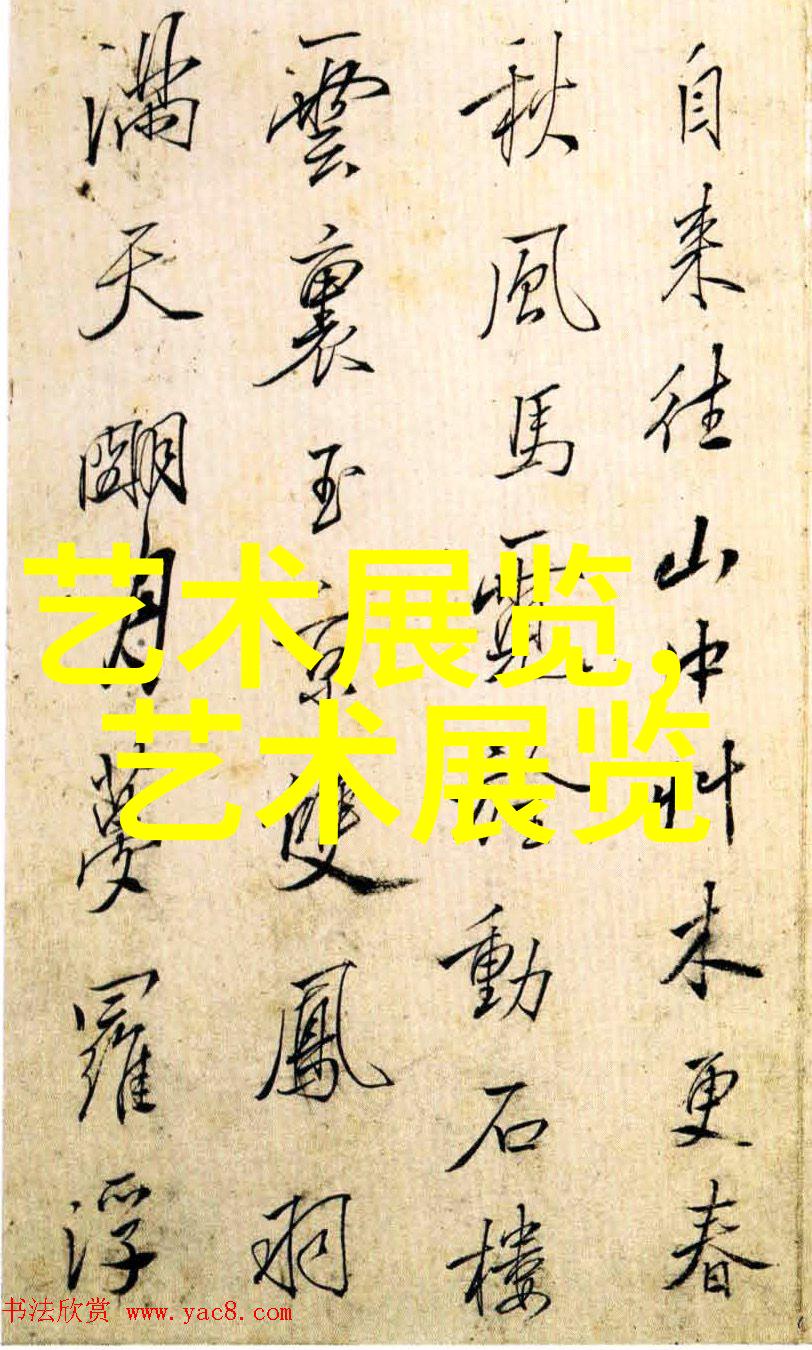 自来往山中艸木更春
秋風馬動石樓
雲裏玉京雙鳳羽
滿天朙月夢羅浮
艺术展览,
艺术展览
书法欣赏 www.yac8.com